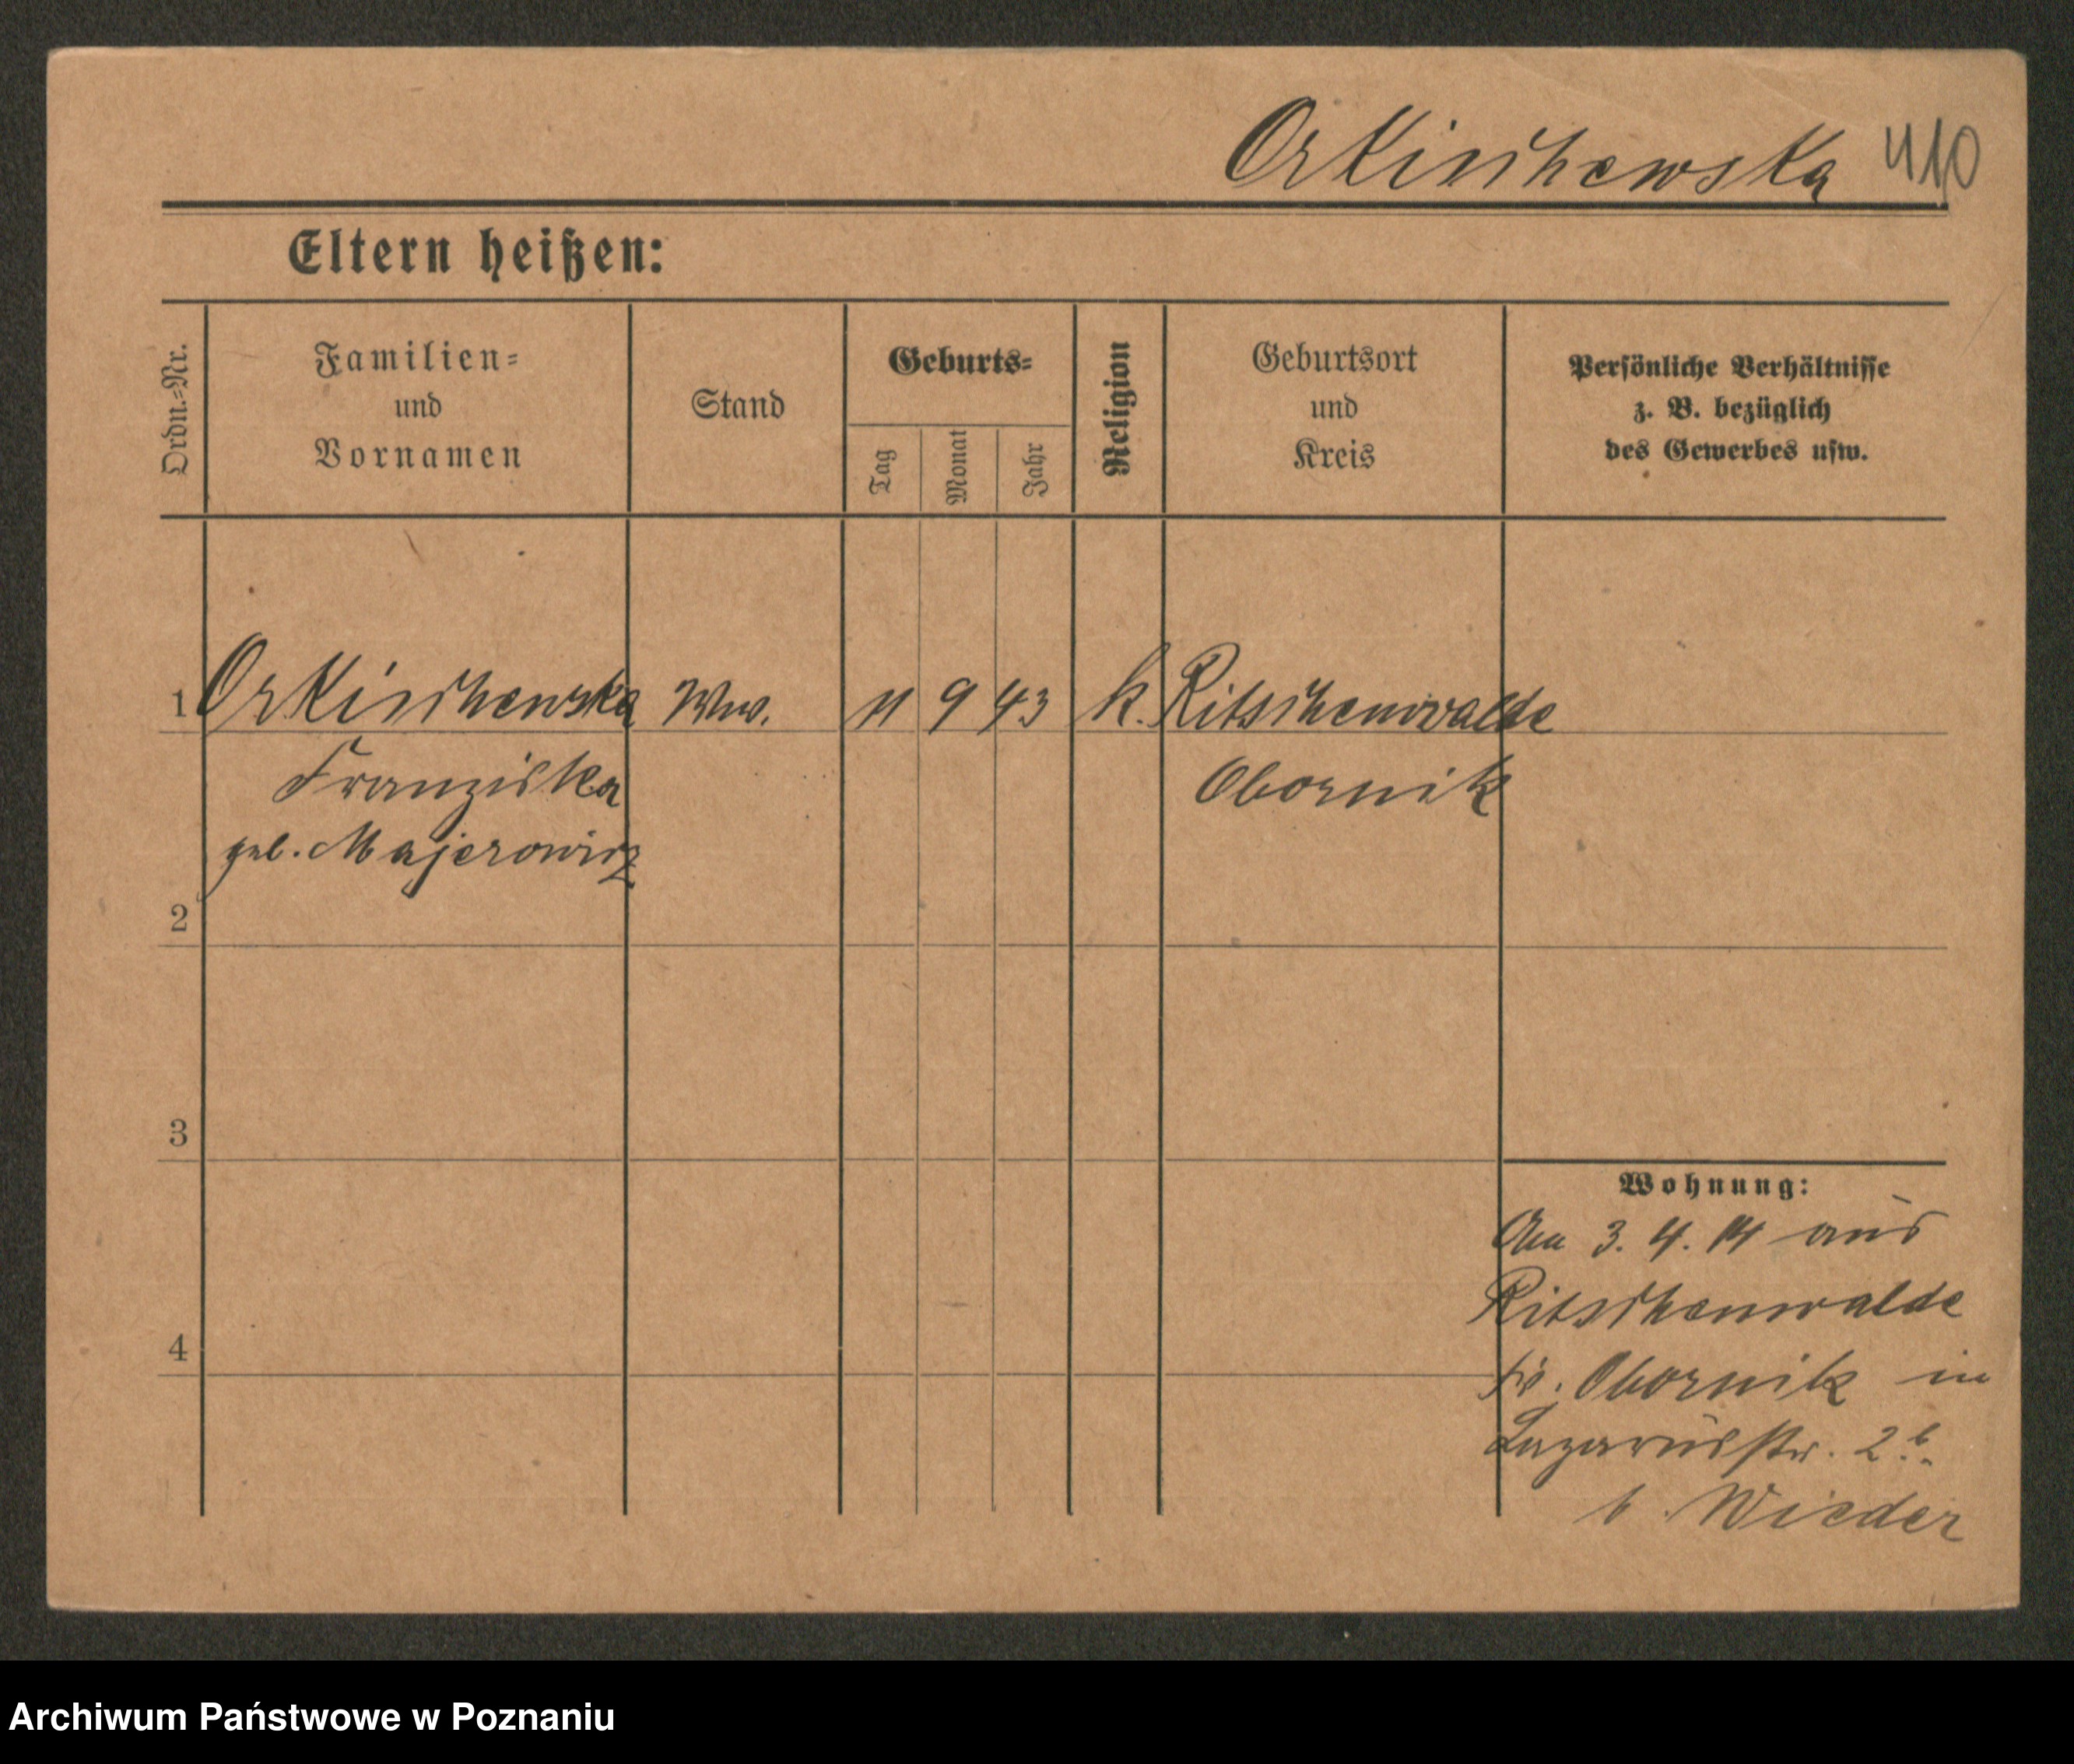 Orkischewska 410
Eltern heißen:
Ordn.-Nr.
Familien-
und
Vornamen
Stand
Geburts-
Tag
Monat
Jahr
Religion
Geburtsort
und
Kreis
Persönliche Verhältnisse
z. B. bezüglich
des Gewerbes usw.
1 Orkischewska Ww. 11 9 43 k. Ritschenwalde
Franziska Obornik
geb. Majerowicz
2
3
4
Wohnung:
3. 4. 14 aus
Ritschenwalde
Kr. Obornik in
Lazarusstr. 2b.
b. Wieder
Archiwum Państwowe w Poznaniu